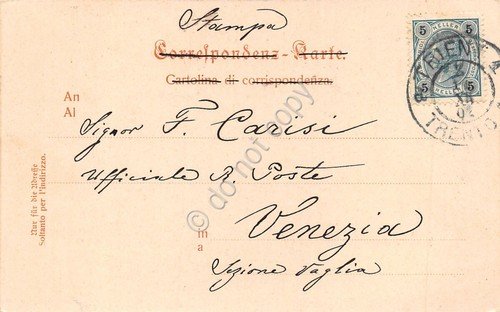 Stampa
Correspondenz-Karte.
Cartolina di corrispondenza.
An
Al
Signor F. Carisi
Ufficiale R. Poste
in
a
Venezia
Sezione Vaglia
Nur für die Adresse
Soltanto per l'indirizzo.
5 HELLER 5
5 5
TRIENT 1
TRENTO
© do not copy